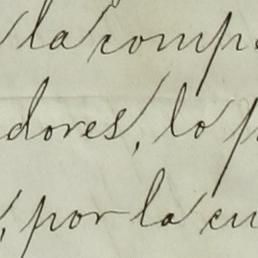 la comp
dores, lo p
, por la cu